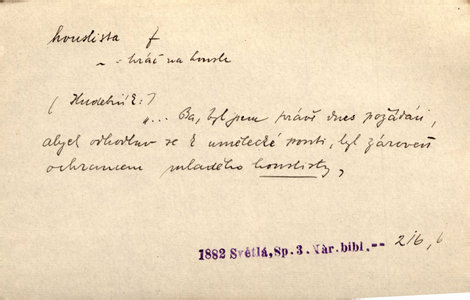 houslista f
~ = hráč na housle
( Hudebník:)
"... Ba, byl jsem právě dnes požádán,
abych odhodlav se k umělecké pouti, byl zároveň
ochrancem mladého houslisty,
1882 Světlá, Sp. 3. Nár. bibl. -- 216,